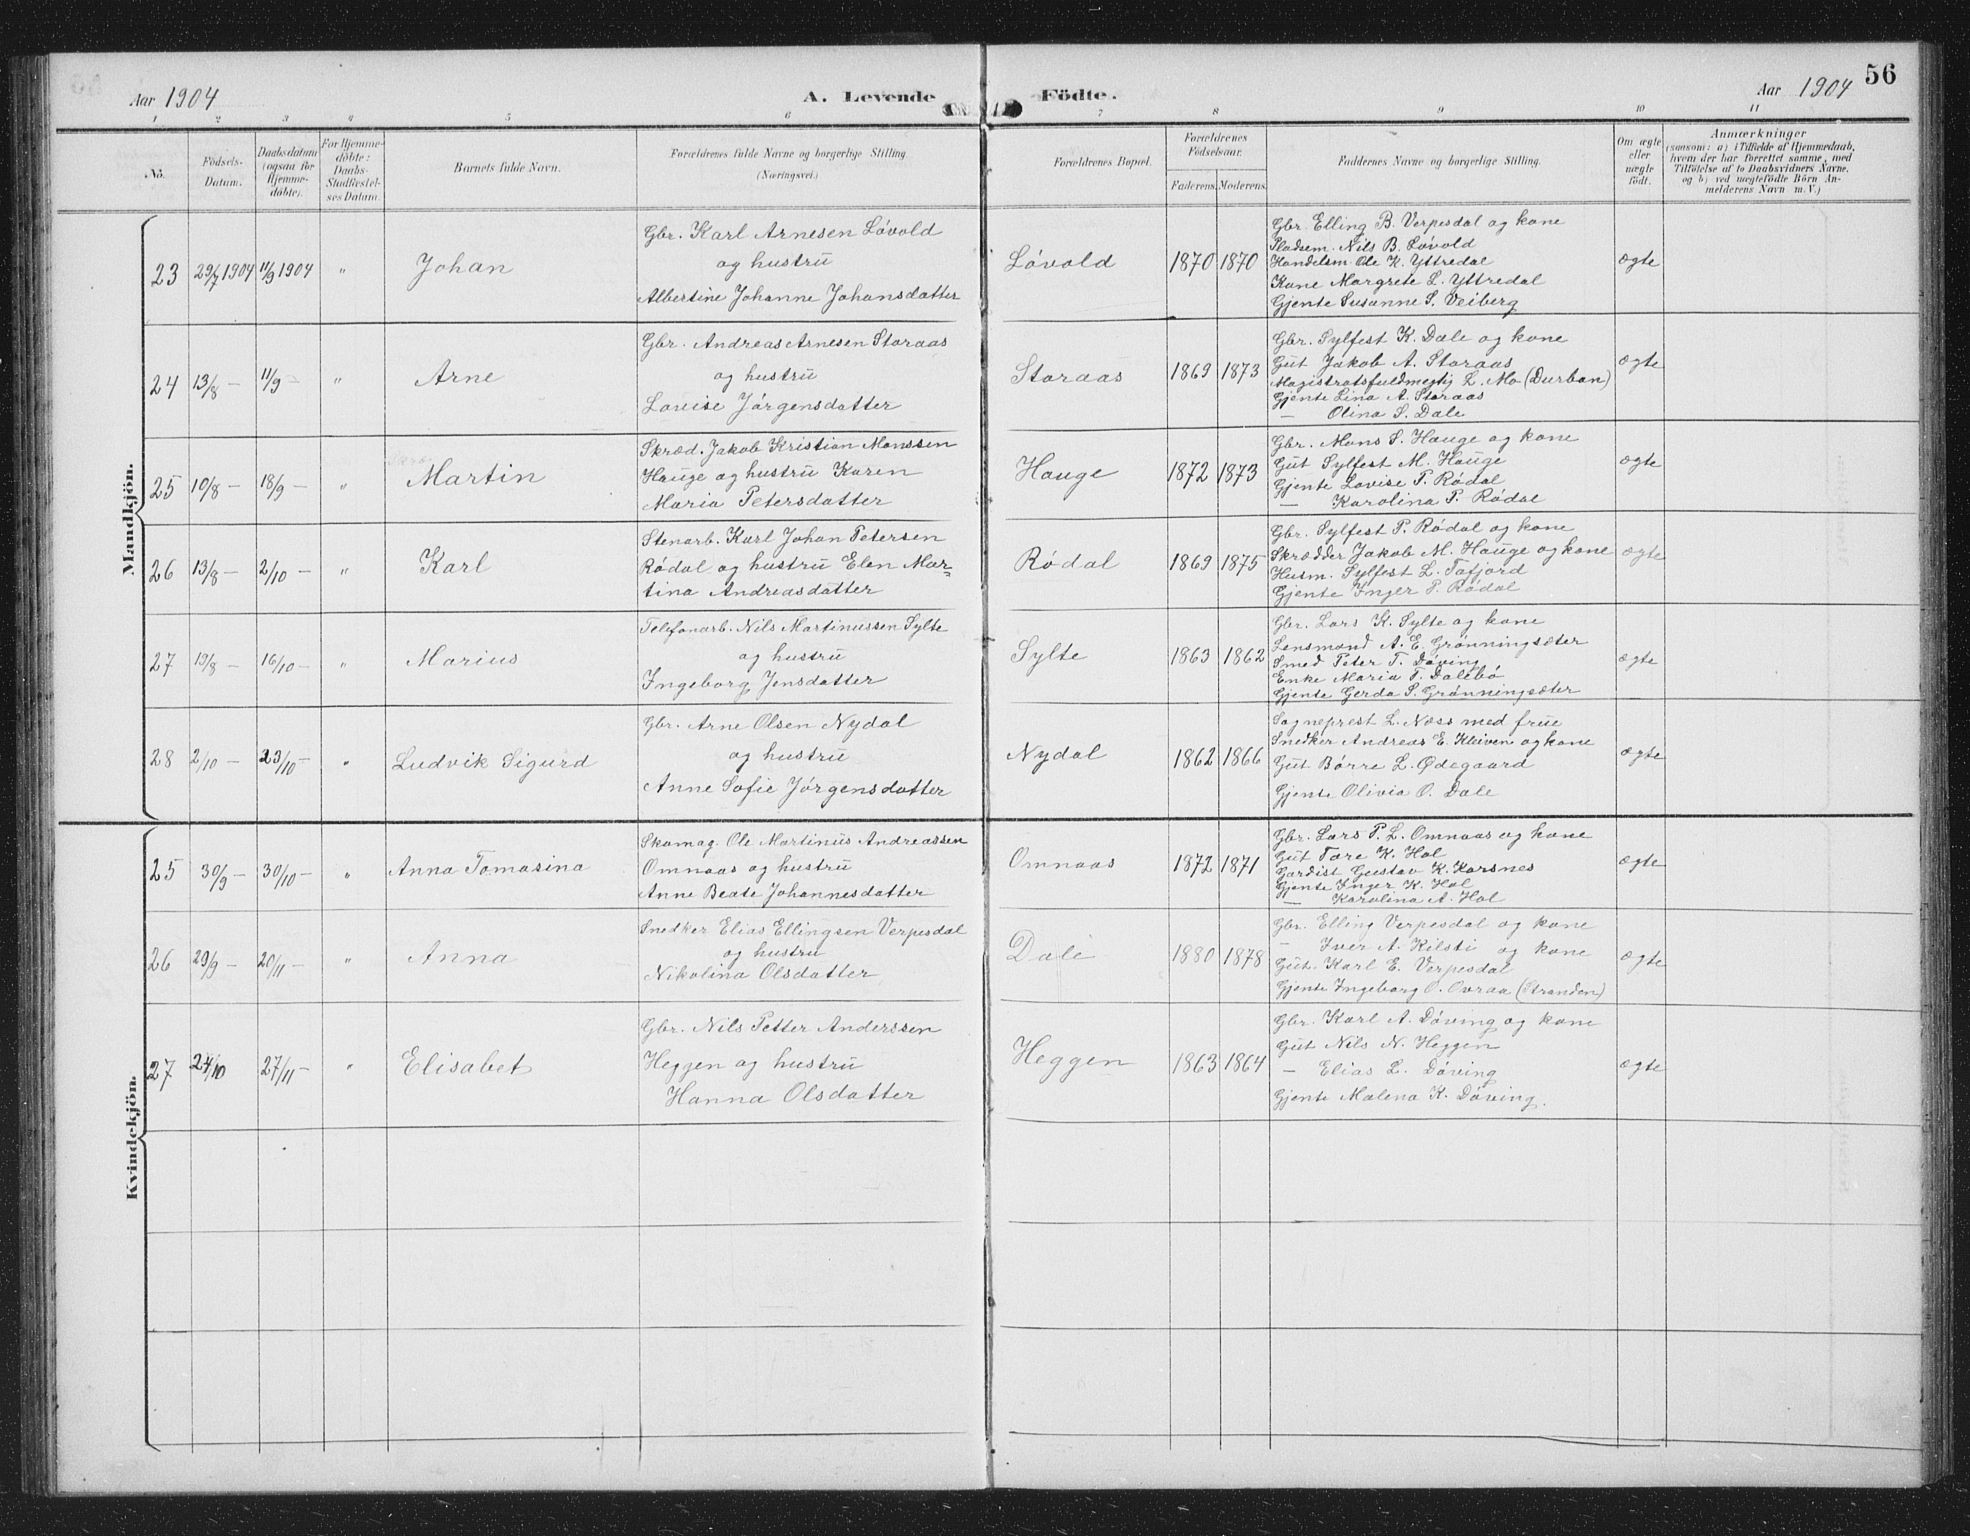 56
Aar 1904
A. Levende
Födte.
Aar 1904
1 2 3 4 5 6 7 8 9 10 11
No.
Födsels-
Datum.
Daabsdatum
(ogsaa for
Hjemme-
döbte).
For Hjemme-
döbte:
Daabs-
Stadfæstel-
ses Datum.
Barnets fulde Navn.
Forældrenes fulde Navne og borgerlige Stilling
(Næringsvei.)
Forældrenes Bopæl.
Forældrenes
Födselsaar.
Faderens. Moderens.
Faddernes Navne og borgerlige Stilling.
Om ægte
eller
uægte
födt.
Anmærkninger
(saasom: a) i Tilfælde af Hjemmedaab,
hvem der har forrettet samme, med
Tilföielse af to Daabsvidners Navne,
og b) ved uægtefödte Börn An-
melderens Navn m. V.)
Mandkjön.
23 29/7 1904 11/9 1904 " Johan
Gbr. Karl Arnesen Lóvold
og hustrú
Albertine Johanne Johansdatter
Lóvold 1870 1870
Gbr. Elling B. Verpesdal og kone
Pladsem. Nils B. Lóvold
Handelsm. Ole K. Yttredal
Kone Margrete L. Yttredal
Gjente Susanne S. Veiberg
ægte
24 13/8 – 11/9 – " Arne
Gbr. Andreas Arnesen Storaas
og hustrú
Lovise Jórgensdatter
Storaas 1869 1873
Gbr. Sylfest K. Dale og kone
Gut Jakob A. Storaas
Magistratsfuldmegtig L. Mo (Durban)
Gjente Lina A. Storaas
— Olina S. Dale
ægte
25 10/8 – 18/9 – " Martin
Skræd. Jakob Kristian Monssen
Hauge og hustrú Karen
Maria Petersdatter
Hauge 1872 1873
Gbr. Mons S. Hauge og kone
Gut Sylfest M. Hauge
Gjente Lovise P. Ródal
— Karolina P. Ródal
ægte
26 13/8 – 2/10 – " Karl
Stenarb. Karl Johan Petersen
Ródal og hustrú Elen Mar-
tina Andreasdatter
Ródal 1869 1875
Gbr. Sylfest P. Ródal og kone
Skrædder Jakob M. Hauge og kone
Husm. Sylfest L. Tafjord
Gjente Inger P. Ródal
ægte
27 19/8 – 16/10 – " Marius
Telefonarb. Nils Martinussen Sylte
og hustrú
Ingeborg Jensdatter
Sylte 1863 1862
Gbr. Lars K. Sylte og kone
Lensmand A. E. Grónningsæter
Smed Peter T. Dóving
Enke Maria T. Dalebó
Gjente Gerda S. Grónningsæter
ægte
28 2/10 – 23/10 – " Ludvik Sigurd
Gbr. Arne Olsen Nydal
og hustrú
Anne Sofie Jórgensdatter
Nydal 1862 1866
Sogneprest L. Næss med frue
Snedker Andreas E. Kleiven og kone
Gut Bórre L. Ødegaard
Gjente Olivia O. Dale
ægte
Kvindekjön.
25 30/9 – 30/10 – " Anna Tomasina
Skomag. Ole Martinus Andreassen
Omnaas og hustrú
Anne Beate Johannesdatter
Omnaas 1872 1871
Gbr. Lars P. L. Omnaas og kone
Gut Tore K. Hol
Gardist Gustav K. Korsnes
Gjente Inger K. Hol
— Karolina A. Hol
ægte
26 29/9 – 20/11 – " Anna
Snedker Elias Ellingsen Verpesdal
og hustru
Nikolina Olsdatter
Dale 1880 1878
Gbr. Elling Verpesdal og kone
— Iver A. Kilsti og kone
Gut. Karl E. Verpesdal
Gjente Ingeborg O. Ovraa (Stranden)
ægte
27 24/10 27/11 – " Elisabet
Gbr. Nils Petter Anderssen
Heggen og hustrú
Hanna Olsdatter
Heggen 1863 1864
Gbr. Karl A. Dóving og kone
Gut Nils N. Heggen
— Elias L. Dóving
Gjente Malena K. Dóving.
ægte